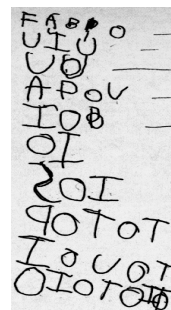 FABPO
UIU
UO
APOU
IOB
OI
SOI
POTOT
IOUOT
OIOTO